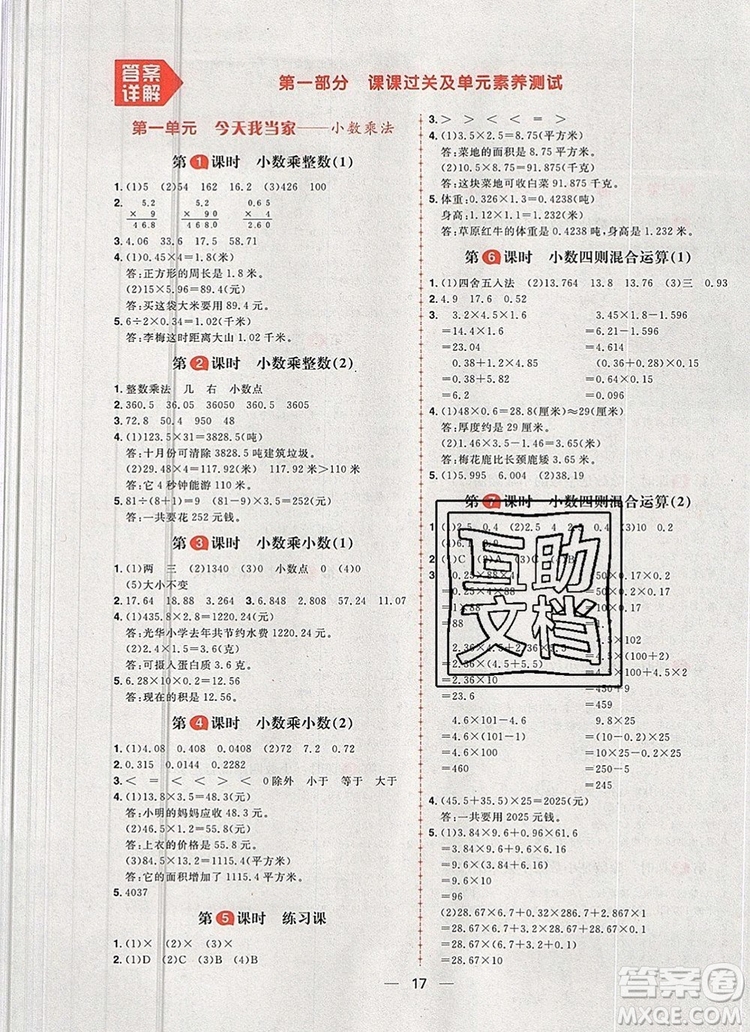 答案详解
第一部分 课课过关及单元素养测试
第一单元 今天我当家——小数乘法
第1课时 小数乘整数(1)
1.(1)5 (2)54 162 16.2 (3)426 100
2. 5.2 5.2 0.65
× 9 × 90 × 9
3. 4.06 33.6 17.5 58.71
4.(1)0.45×4=1.8(米)
答:正方形的周长是1.8米。
(2)15×5.96=89.4(元)
答:买这袋大米要用89.4元。
5. 6÷2×0.34=1.02(千米)
答:李梅这时距离大山1.02千米。
第2课时 小数乘整数(2)
1. 整数乘法 几 右 小数点
2. 360.5 36.05 36050 360.5
3. 72.8 50.4 950 48
4.(1)123.5×31=3828.5(吨)
答:十月份可清除3828.5吨建筑垃圾。
(2)29.48×4=117.92(米)
答:它4秒钟能游117.92米。
5. 81÷(9+1)=8.1(元) (81-8.1)+(9+8.1)×10=252(元)
答:一共要花252元钱。
第3课时 小数乘小数(1)
1.(1)两 三 (2)1340 (3)0 小数点 (4)0
(5)大小不变
2. 17.64 18.88 3. 6.848 11.34 17.0237
4.(1)435.8×2.8=1220.24(元)
答:光华小学去年共节约水费1220.24元。
答:可摄入蛋白质3.6克。
5. 6.28×10÷5=12.56
答:现在的积是12.56。
第4课时 小数乘小数(2)
1.(1)4.08 0.408 0.0408 (2)72 7.2 0.72
2. 0.315 0.0144 0.2282
3. > = < < > < 0除外 小于 等于 大于
4.(1)13.8×3.5=48.3(元)
答:小明的妈妈应收48.3元。
(2)46.5×1.2=55.8(元)
答:上衣的价格是55.8元。
(3)84.5×13.2=1115.4(平方米)
答:它的面积是1115.4平方米。
5. 4037
第5课时 练习课
1.(1)× (2)× (3)× (4)×
2.(1)D (2)C (3)B (4)B
3. > > < = < >
4.(1)3.5×2.5=8.75(平方米)
答:菜地的面积是8.75平方米。
(2)8.75×10.5=91.875(千克)
答:这块菜地可收白菜91.875千克。
5. 体重:0.326×1.3=0.4238(吨)
身高:1.12×1.1=1.232(米)
答:草原红牛的体重是0.4238吨,身高是1.232米。
第6课时 小数四则混合运算(1)
1.(1)四舍五入法 (2)13.764 13.8 13.76 (3)三 0.93
2. 4.9 10.5 0.46 3.57
3. 3.2×4.5×1.6 3.45×1.8-1.596
=14.4×1.6 =6.21-1.596
=23.04 =4.614
0.38+1.2×4.5 0.38×2-0.16
=0.38+5.4 =0.76-0.16
4.(1)0.18×10×16=28.8(厘米)≈29(厘米)
答:厚度约是29厘米。
答:梅花鹿比长颈鹿矮3.06米。
5.(1)17.92 16.5 (2)38.19
第7课时 小数四则混合运算(2)
=2.36×10
=23.6 =459
4.6×101-4.6 4.5×102
=4.6×(101-1) =4.5×(100+2)
=4.6×100 =4.5×100+4.5×2
=460 =450+9
=459
4.(45.5+35.5)×25=2025(元)
答:一共要用2025元钱。
5.(1)3.84×9.6+0.96×61.6
=3.84×9.6+9.6×6.16
=(3.84+6.16)×9.6
=10×9.6
=96
(2)28.67×6.7+0.32×286.7+28.67×0.1
=28.67×6.7+3.2×28.67+28.67×0.1
=28.67×(6.7+3.2+0.1)
=28.67×10
=286.7
17
互助文档
答案圈
MXQE.COM